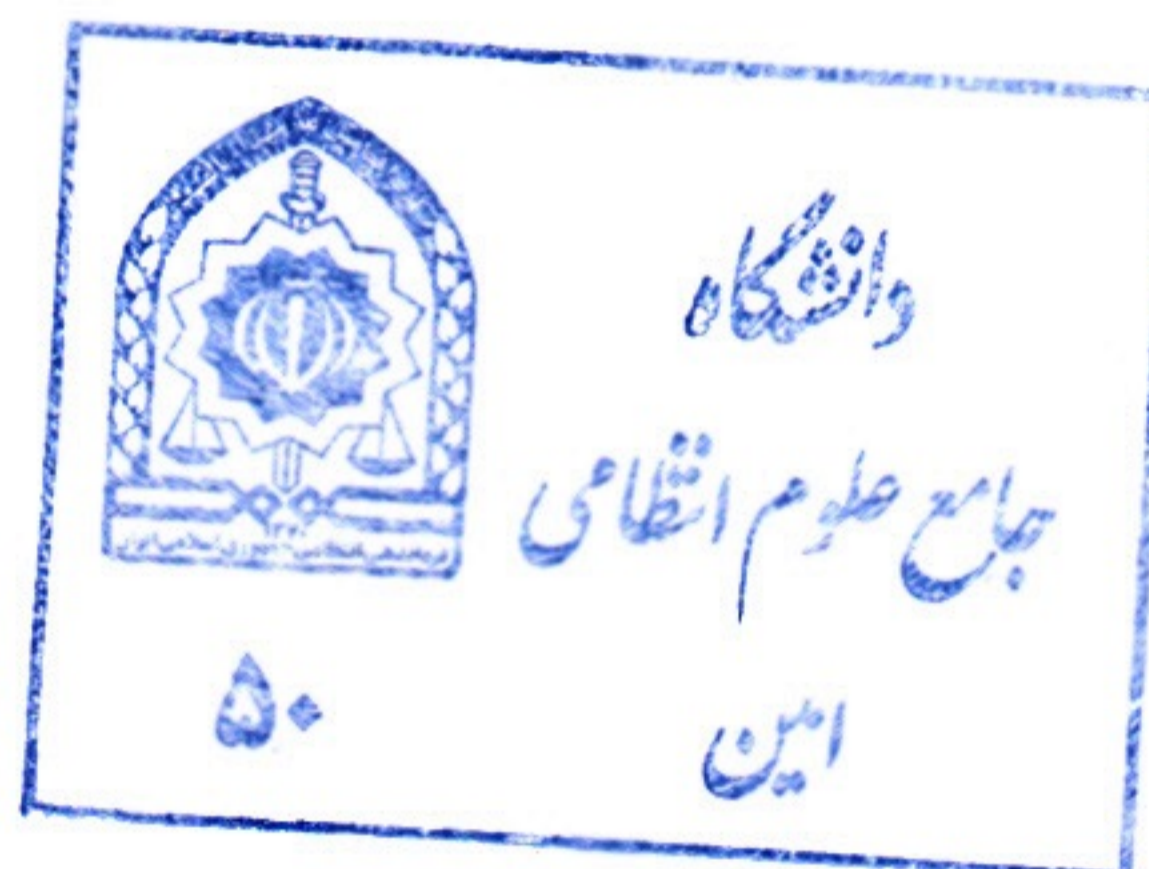 دانشگاه
جامع علوم انتظامی
امین
۵۰